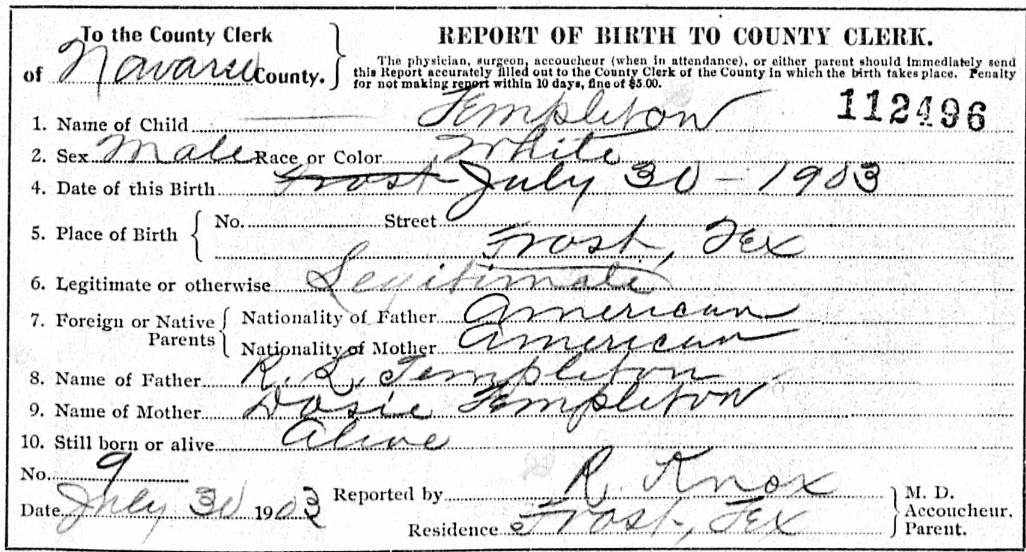 To the County Clerk
of Navarro County.
REPORT OF BIRTH TO COUNTY CLERK.
The physician, surgeon, accoucheur (when in attendance), or either parent should immediately send
this Report accurately filled out to the County Clerk of the County in which the birth takes place. Penalty
for not making report within 10 days, fine of $5.00.
112496
1. Name of Child Templeton
2. Sex Male Race or Color White
4. Date of this Birth Frost July 30 - 1903
5. Place of Birth No. Street
Frost, Tex
6. Legitimate or otherwise Legitimate
7. Foreign or Native Parents Nationality of Father American
Nationality of Mother American
8. Name of Father R. L. Templeton
9. Name of Mother Dosie Templeton
10. Still born or alive Alive
No. 9
Date July 30 1903
Reported by R. Knox
Residence Frost, Tex
M. D.
Accoucheur.
Parent.